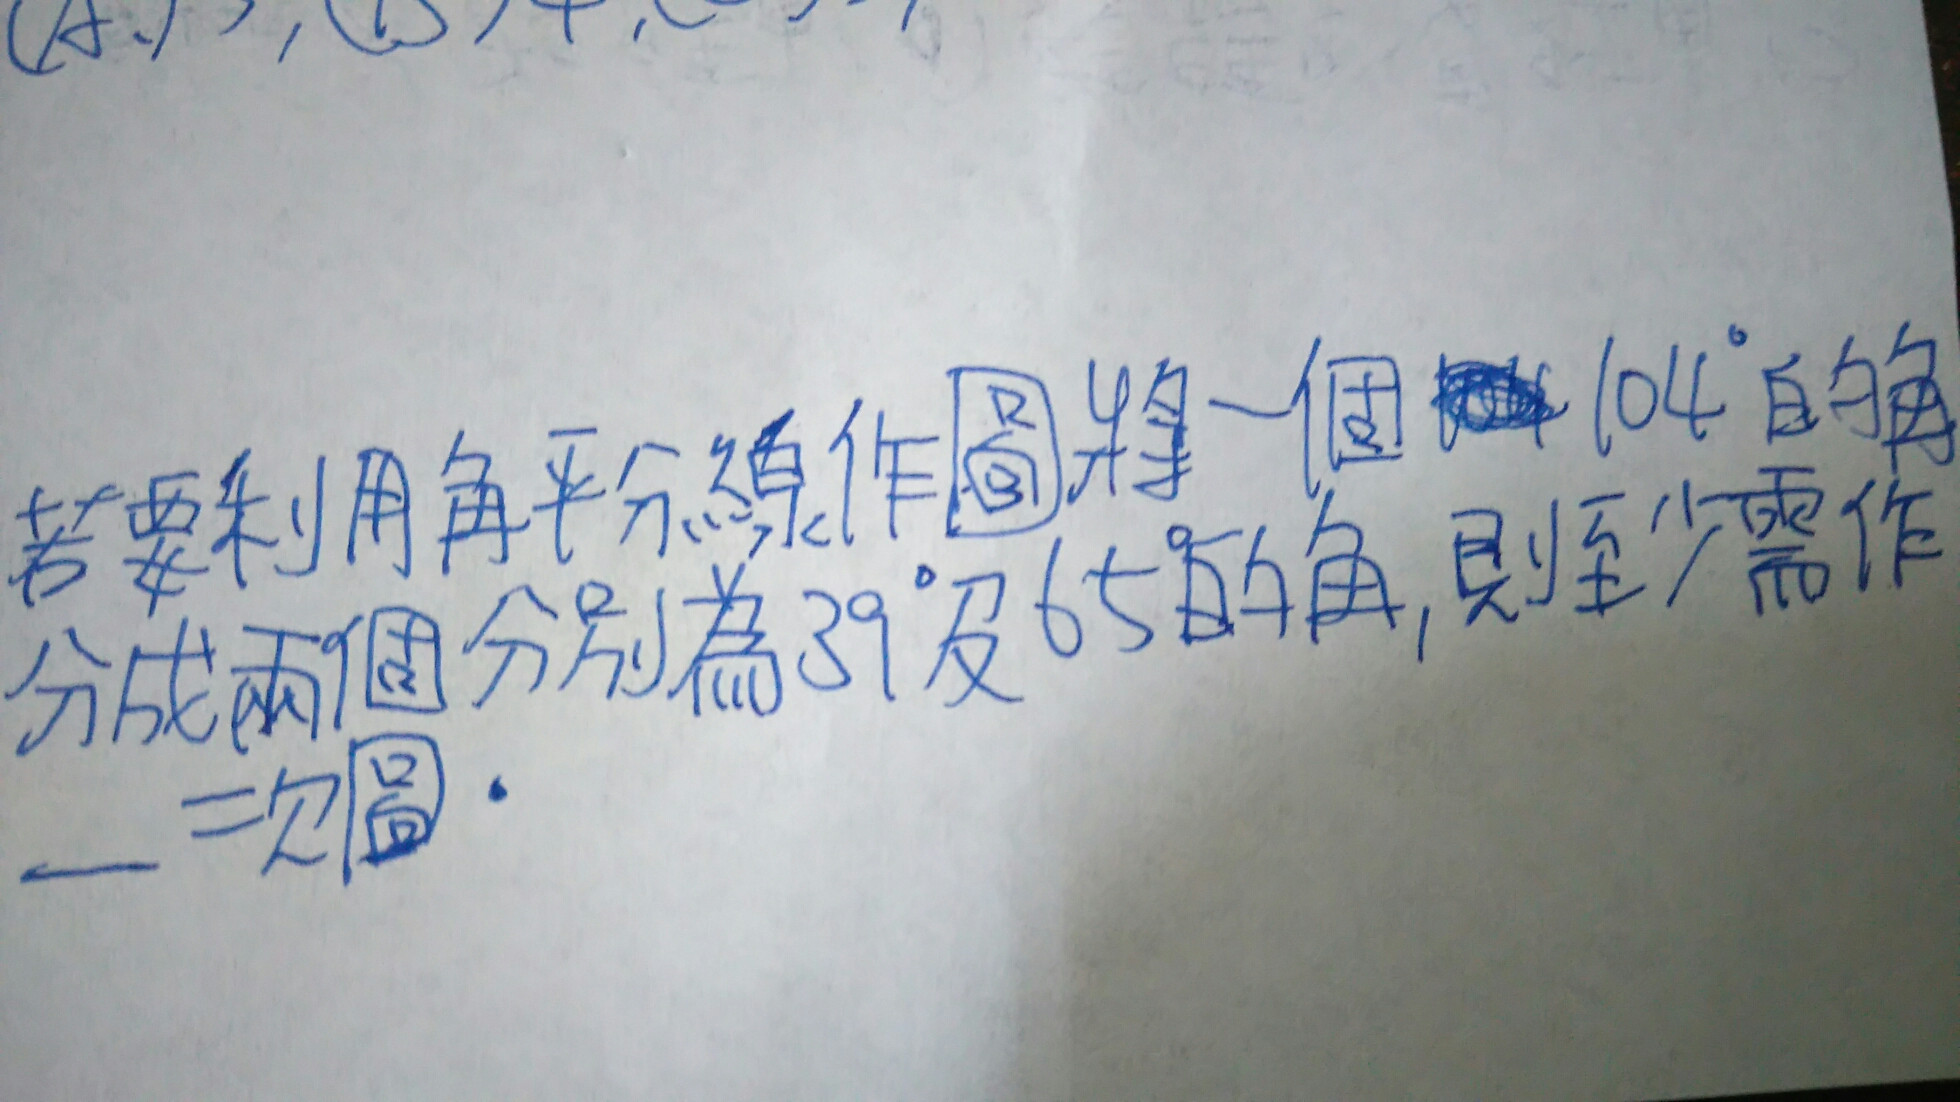 若要利用角平分線作圖將一個 104°的角
分成兩個分別為39°及65°的角,則至少需作
__二次圖.